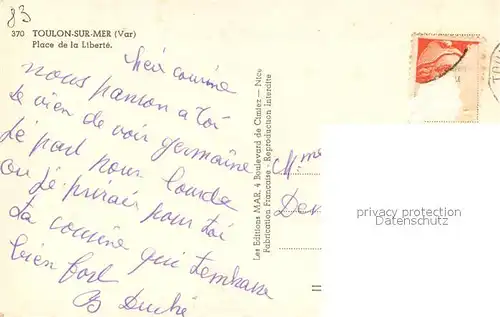 83
370 TOULON-SUR-MER (Var)
Place de la Liberté.
Chér cousine
nous panson a toi
je vien de voir germaine
Je part pour Lourde
ou Je prirais pour toi
ta cousine qui tembrasse
bien fort
B Duché
Les Editions MAR, 4 Boulevard de Cimiez. — Nice
Fabrication Française - Reproduction interdite
Mme
Den
privacy protection
Datenschutz
TOUL